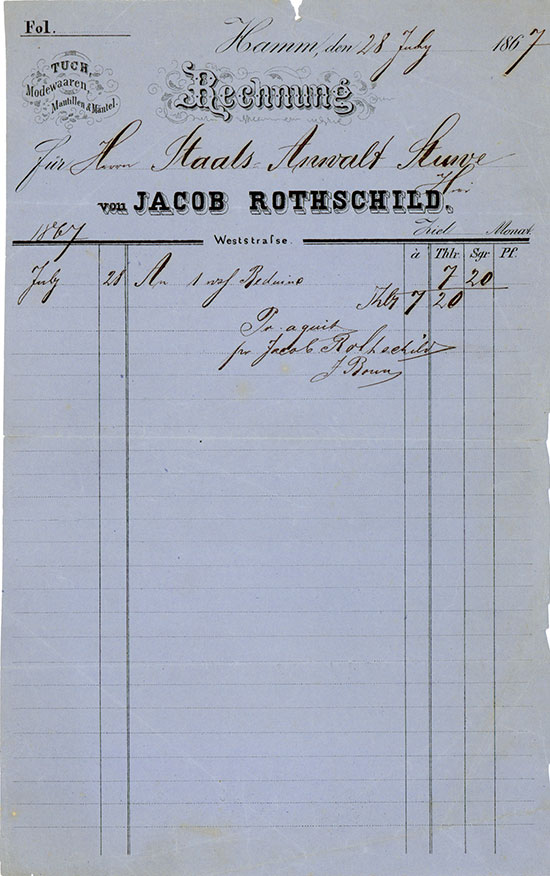 Fol.
Hamm, den 28 July 1867
TUCH
Modewaaren,
Mantillen & Mäntel.
Rechnung
Für Herrn Staats-Anwalt Stuwe
Hier
von JACOB ROTHSCHILD.
1867 Ziel Monat
Weststrafse.
à Thlr. Sgr Pf.
July 28 An 1 wß Beduine 7 20
Thlr 7 20
Pr. aquit
pr Jacob Rothschild
J